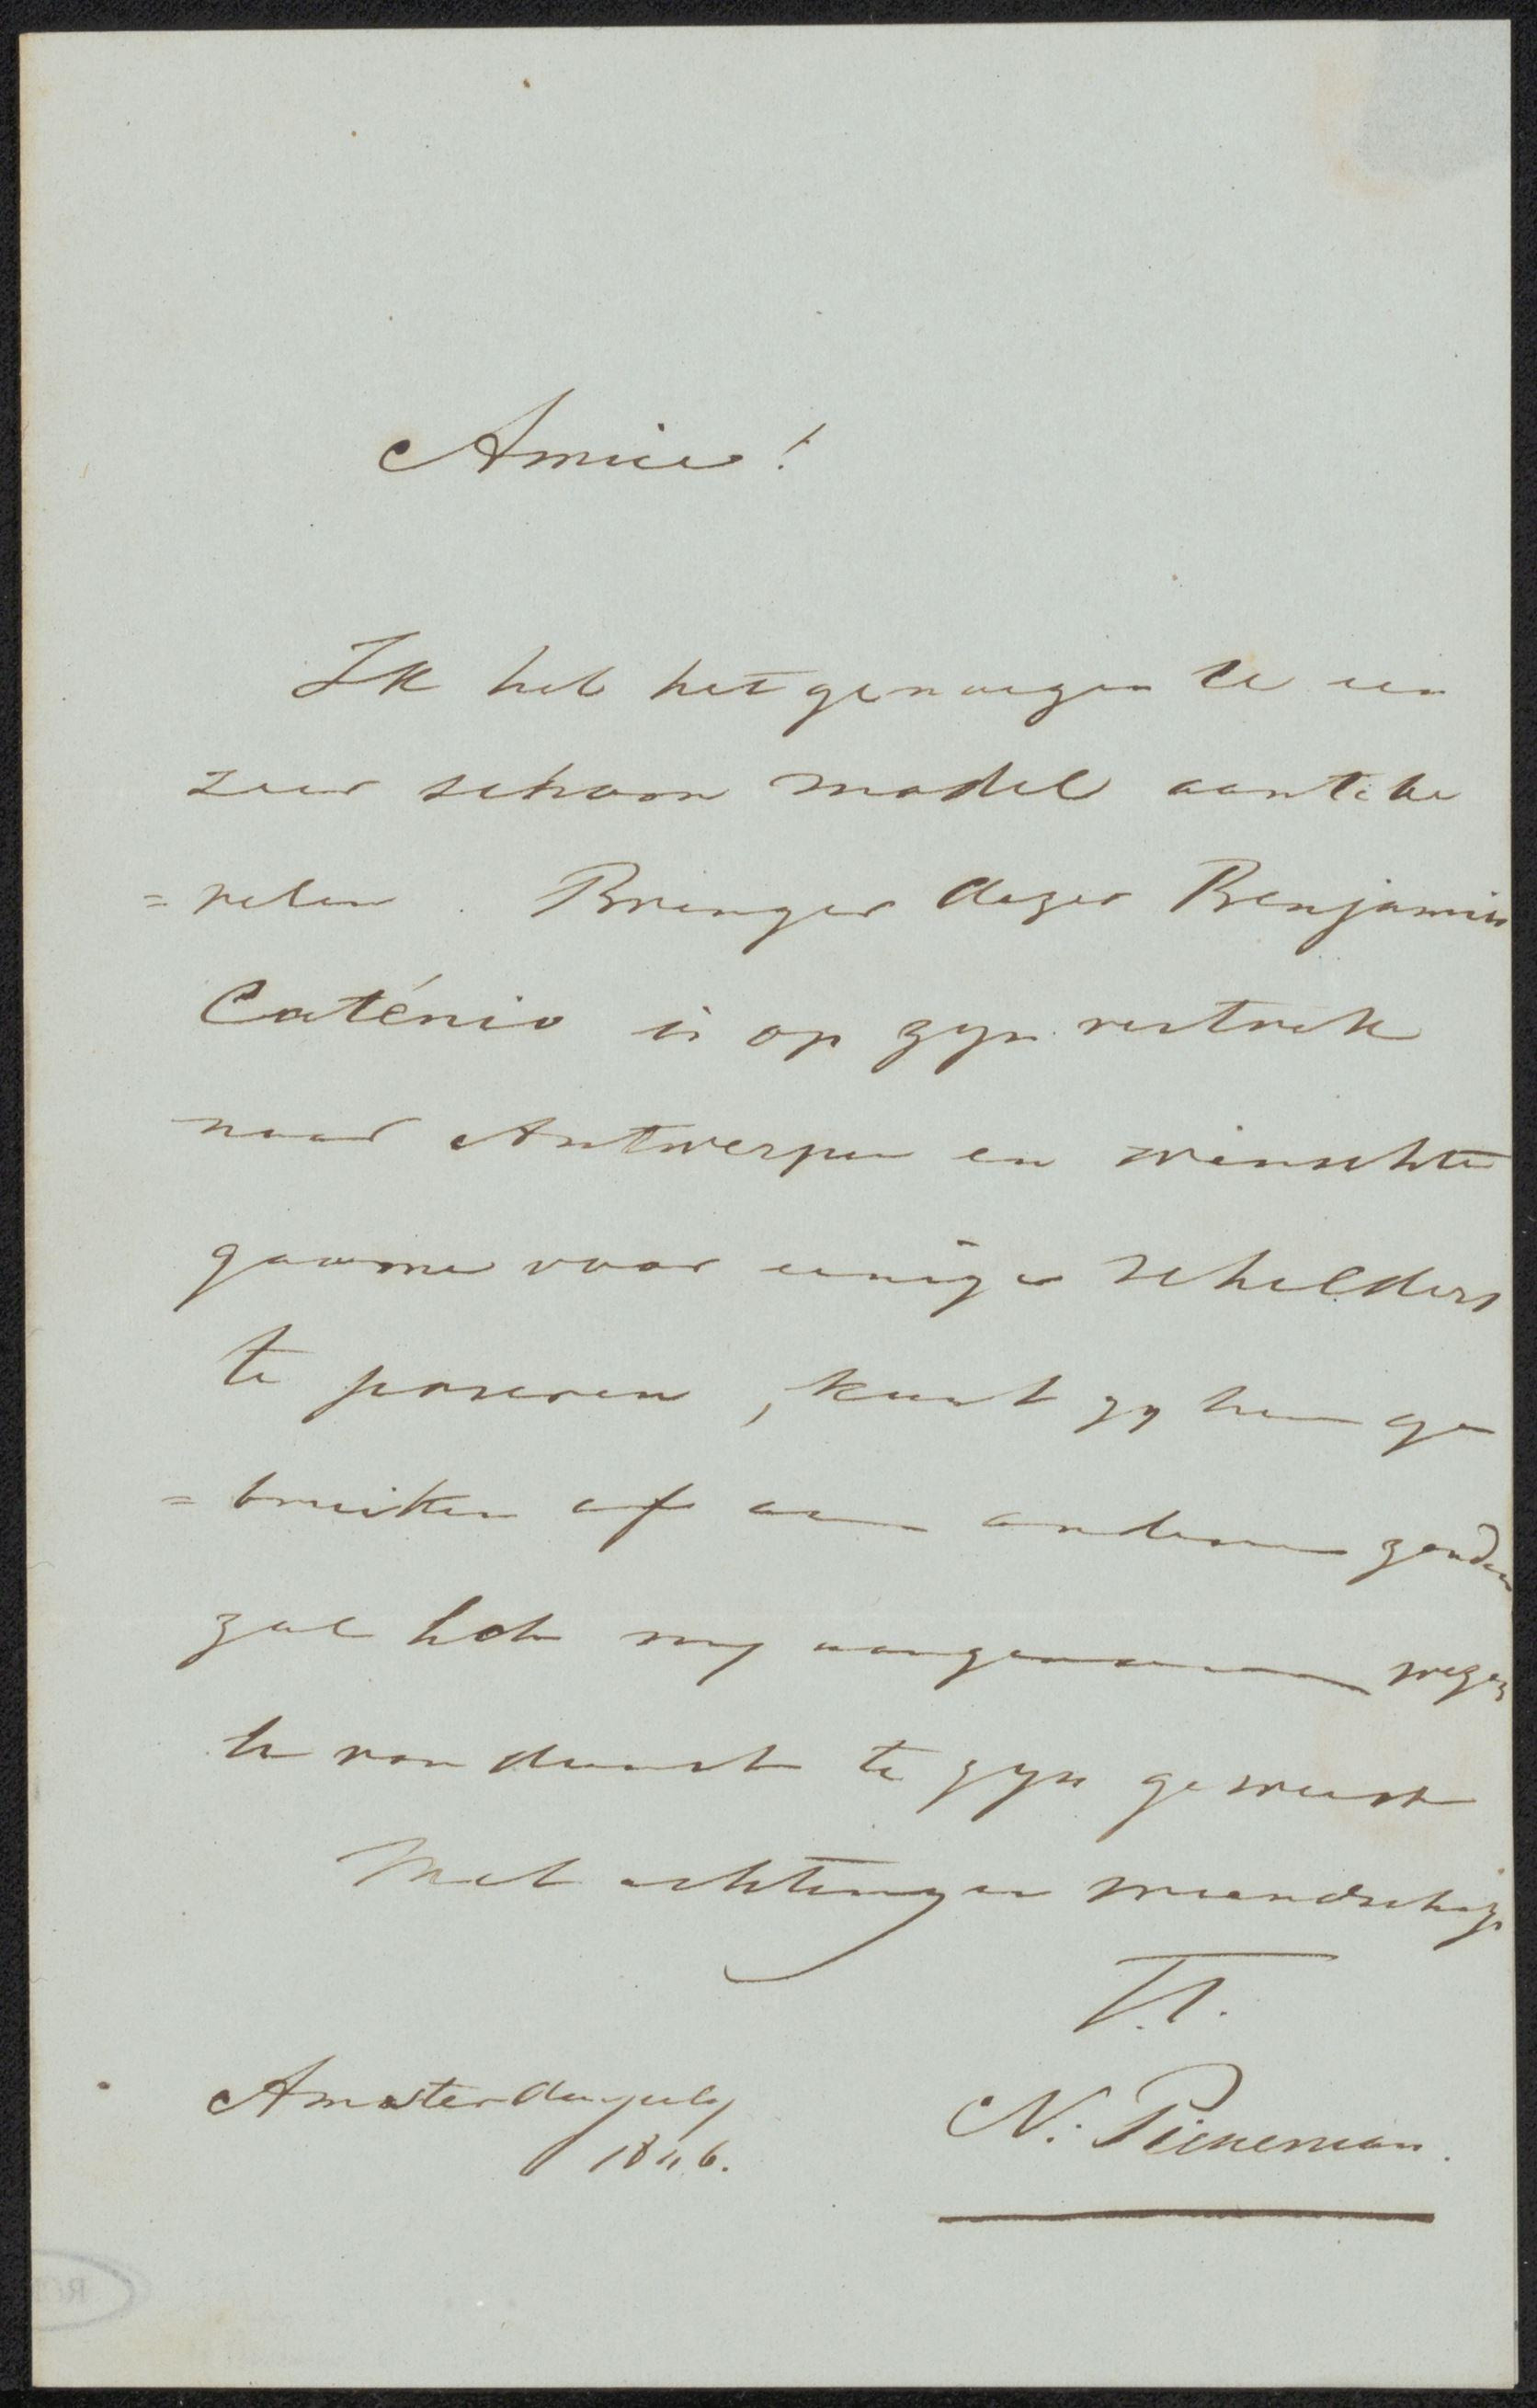 Amice!
Ik heb het genoegen U een
zeer schoon model aan te be
= velen. Brenger dezer Benjamin
Caténio is op zyn vertrek
naar Antwerpen en wenschte
gaarne voor eenige schilders
te poseren, kunt gy hem ge
= bruiken of aan anderen zenden
zal het my aangenaam wezen
U van dienst te zyn geweest
Met achting en vriendschap
T.T.
Amsterdam july
1846.
N: Pieneman.